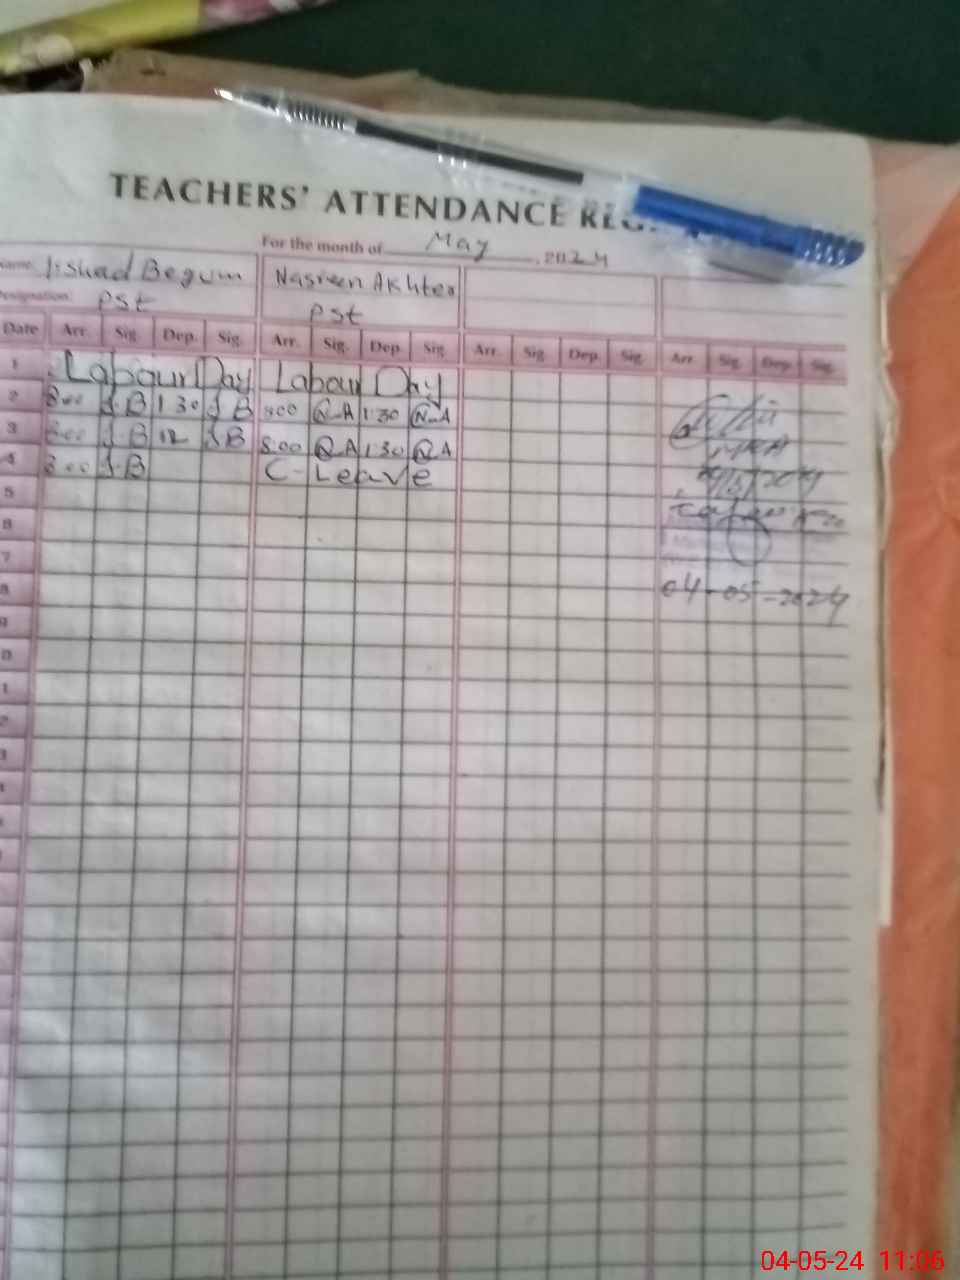 TEACHERS' ATTENDANCE REG.
For the month of May, 2024
Name: Irshad Begum Nasreen Akhter
Designation: PST PST
Date Arr. Sig. Dep. Sig. Arr. Sig. Dep. Sig. Arr. Sig. Dep. Sig. Arr. Sig. Dep. Sig.
1 Labour Day Labour Day
2 8:00 I.B 1:30 I.B 8:00 N.A 1:30 N.A
3 8:00 I.B 12 I.B 8:00 N.A 1:30 N.A
4 8:00 I.B C-Leave
5
6
7
8 04-05-2024
9
0
1
2
3
04-05-24 11:06